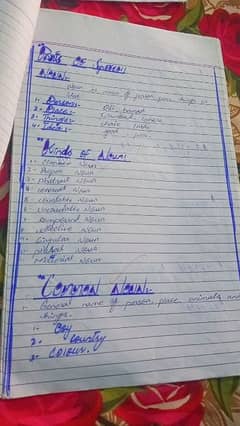 Parts OF Speech
NOUN:-
noun is name of person place things or
idea
1- Person:-
2- Place:-
3- Things:- chair, table
4- Idea:- good
Kinds of Noun:
1- Common Noun
2- Proper Noun
3- Abstract Noun
4- concrete Noun
5- countable Noun
6- uncountable Noun
7- compound Noun
8- collective Noun
9- Singular Noun
10- plural Noun
Noun
Common Noun:-
General name of person place animals and
things.
1- Boy
2- country
3- colour.